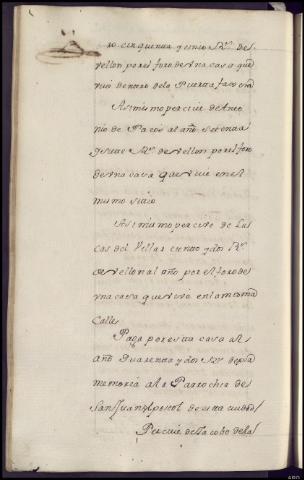 ro cinquenta y cinco R.s de
vellon por el foro de una casa que
vive dentro de la Puerta
Asimismo percive de Anto
nio de Pazos al año setenta
y siete R.s de vellon por el foro
de una casa que vive en el
mismo sitio
Asimismo percive de Lu
cas del Villar ciento y dos R.s
de vellon al año por el foro de
una casa que vive en la misma
Calle
Paga por esta casa al
año quarenta y dos R.s de pia
memoria a la Parrochia de
San Juan Apostol de esta ciudad
Percive de Jacobo de la